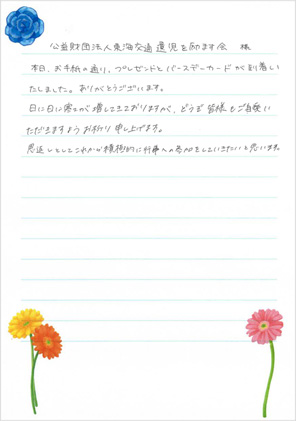 公益財団法人東海交通遺児を励ます会 様
本日、お手紙の通り、プレゼントとバースデーカードが到着い
たしました。ありがとうございます。
日に日に寒さが増してきておりますが、どうぞ皆様もご自愛い
ただきますようお祈り申し上げます。
恩返しとしてこれから積極的に行事への参加をしていきたいと思います。